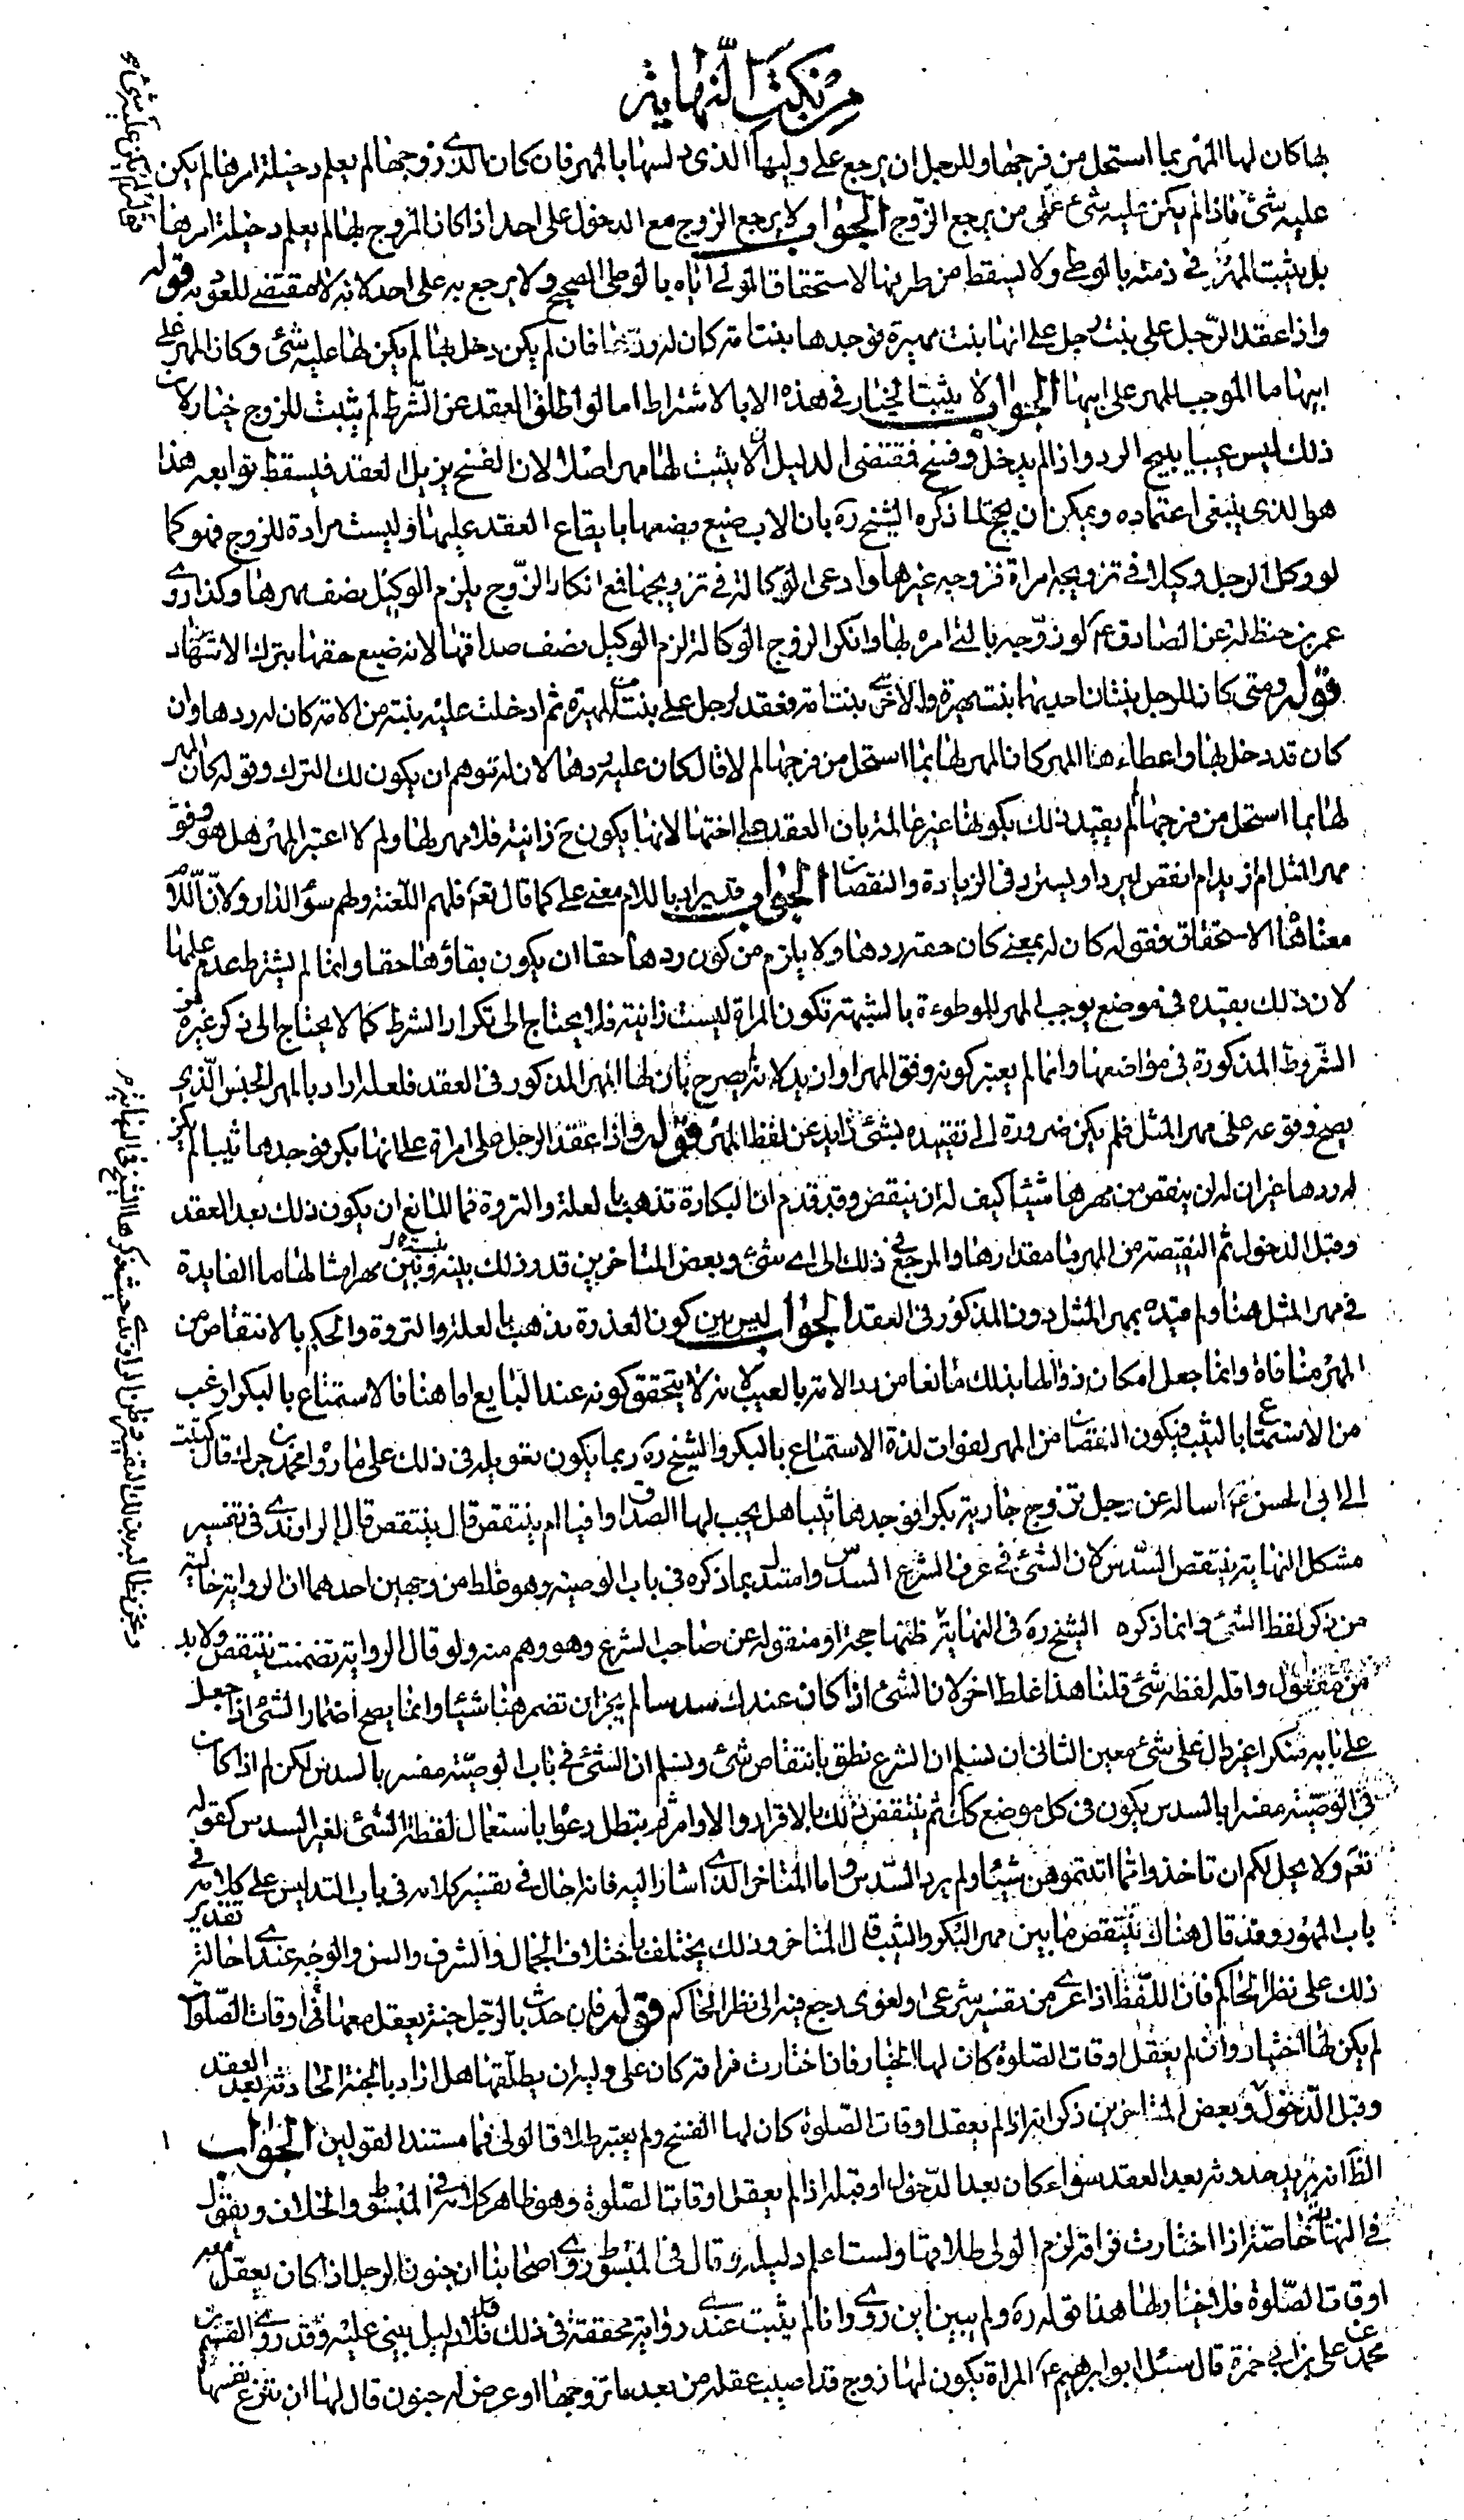 من نكت النهاية
بها كان لها المهر بما استحل من فرجها وللرجل ان يرجع على وليها الذي دلسها بالمهر فان كان الذي زوجها لم يعلم دخيلة امرها لم يكن
عليه شئ فاذا لم يكن عليه شئ على من يرجع الزوج الجواب لا يرجع الزوج مع الدخول على احد اذا كان المزوج لها لم يعلم دخيلة امرها
بل يثبت المهر في ذمته بالوطى ولا يسقط من طريها لاستحقاقها اياه بالوطى الصحيح ولا يرجع به على احد لانه لا مقتضى للعود به قوله
واذا عقد الرجل على بنت رجل على انها بنت مهيرة فوجدها بنت امة كان له ردها فان لم يكن دخل بها لم يكن لها عليه شئ وكان المهر على
ابيها ما الموجب للمهر على ابيها الجواب لا يثبت الخيار في هذه الا بالاشتراط اما لو اطلق العقد عن الشرط لم يثبت للزوج خيار لان
ذلك ليس عيبا يبيح الرد واذا لم يدخل وفسخ فمقتضى الدليل ان لا يثبت لها مهر اصلا لان الفسخ يزيل العقد فيسقط توابعه هذا
هو الذي ينبغي اعتماده ويمكن ان يحتج لما ذكره الشيخ ره بان الاب ضيع بضعها بايقاع العقد عليها وليست مرادة للزوج فهو كما
لو وكل الرجل وكيلا في تزويجه امراة فزوجه غيرها وادعى الوكالة في تزويجها فمع انكار الزوج يلزم الوكيل نصف مهرها وكذا روى
عمر بن حنظلة عن الصادق ع لو زوجه بالتي امره بها وانكر الزوج الوكالة لزم الوكيل نصف صداقها لانه ضيع حقها بترك الاشهاد
قوله ومتى كان للرجل بنتان احديهما بنت مهيرة والاخرى بنت امة فعقد لرجل على بنت المهيرة ثم ادخلت عليه بنته من الامة كان له ردها وان
كان قد دخل بها واعطاها المهر كان المهر لها بما استحل من فرجها لم لا قال كان عليه ردها لان له توهم ان يكون لك الترك وقوله كان المهر
لها بما استحل من فرجها لم لم يقيد ذلك بكونها غير عالمة بان العقد على اختها لانها يكون ح زانية فلا مهر لها ولم لا اعتبر المهر هل هو وفق
مهر المثل ام ازيد ام انقص ليرد او يسترد في الزيادة والنقصان الجواب قد يراد باللام معنى على كما قال تعالى فلهم اللعنة ولهم سوء الدار ولان اللام
معناها الاستحقاق فقوله كان له بمعنى كان حقه ردها ولا يلزم من كون ردها حقا ان يكون بقاؤها حقا وانما لم يشترط عدم علمها
لان ذلك يقيده في موضع يوجب المهر للموطوءة بالشبهة تكون المراة ليست زانية فلا يحتاج الى تكرار الشرط كما لا يحتاج الى ذكر غيره من
الشروط المذكورة في مواضعها وانما لم يعتبر كونه وفق المهر او ازيد لانه يصرح بان لها المهر المذكور في العقد فلعله اراد بالمهر الجنس الذي
يصح وقوعه على مهر المثل فلم يكن ضرورة الى تقييده بشئ زايد عن لفظ المهر قوله واذا عقد الرجل على امراة على انها بكر فوجدها ثيبا لم يكن
له ردها غير ان له ان ينقص من مهرها شيئا كيف له ان ينقص وقد قدم ان البكارة تذهب بالعلة والنزوة فما المانع ان يكون ذلك بعد العقد
وقبل الدخول ثم النقيصة من المهر ما مقدارها والمرجع في ذلك الى اي شئ وبعض المتاخرين قدر ذلك بنسبة ما بينه وبين مهر امثالها ما الفايدة
في مهر المثل هنا ولم قيده بمهر المثل دون المذكور في العقد الجواب ليس بين كون العذرة تذهب بالعلة والنزوة والحكم بالانتقاص من
المهر منافاة وانما جعل امكان ذهابها بذلك مانعا من رد الامة بالعيب لانه لا يتحقق كونه عند البايع اما هنا فالاستمتاع بالبكر ارغب
من الاستمتاع بالثيب فيكون النقصان من المهر لفوات لذة الاستمتاع بالبكر والشيخ ره ربما يكون تعويله في ذلك على ما رواه محمد بن جزك قال كتبت
الى ابي الحسن ع اساله عن رجل تزوج جارية بكرا فوجدها ثيبا هل يجب لها الصداق وافيا ام ينتقص قال ينتقص قال الراوندي في تفسير
مشكل النهاية ينتقص السدس لان الشئ في عرف الشرع السدس واستدل بما ذكره في باب الوصية وهو غلط من وجهين احدهما ان الرواية خالية
من ذكر لفظ الشئ وانما ذكره الشيخ ره في النهاية ظنها حجة او منقوله عن صاحب الشرع وهو وهم منه ولو قال الرواية تضمنت ينتقص ولا بد
من مفعول واقله لفظه شئ قلنا هذا غلط اخر لان الشئ اذا كان عندك سدسا لم يجز ان تضمر هنا شيئا وانما يصح اضمار الشئ اذا جعل
على بابه منكرا غير دال على شئ معين الثاني ان نسلم ان الشرع نطق بانتقاص شئ ونسلم ان الشئ في باب الوصية مفسر بالسدس لكن لم اذا كان
في الوصية مفسرا بالسدس يكون في كل موضع كك ثم ينتقض ذلك بالاقرار والاوامر ثم يبطل دعواه باستعمال لفظة الشئ لغير السدس كقوله
تعم ولا يحل لكم ان تاخذوا مما اتيتموهن شيئا ولم يرد السدس واما المتاخر الذي اشار اليه فانه احال في تفسير كلامه في باب التدليس على كلامه في
باب المهور وقد قال هناك ينتقص ما بين مهر البكر والثيب قال المتاخر وذلك يختلف باختلاف الجمال والشرف والسن والوجه عندي احالة تقدير
ذلك على نظر الحاكم فان اللفظ اذا عري من تفسير شرعي او لغوي رجع فيه الى نظر الحاكم قوله فان حدث بالرجل جنة يعقل معها اوقات الصلوات
لم يكن لها اختيار وان لم يعقل اوقات الصلوة كان لها الخيار فان اختارت فراقه كان على وليه ان يطلقها هل اراد بالجنة الحادثة بعد العقد
وقبل الدخول وبعض المتاخرين ذكر انه اذا لم يعقل اوقات الصلوة كان لها الفسخ ولم يعتبر طلاق الولي فما مستند القولين الجواب
الظ انه يريد حدوثه بعد العقد سواء كان بعد الدخول او قبله اذا لم يعقل اوقات الصلوة وهو ظاهر كلامه في المبسوط والخلاف ويقول
في النهاية خاصة اذا اختارت فراقه لزم الولي طلاقها ولست اعلم دليله وقال في المبسوط روى اصحابنا ان جنون الرجل اذا كان يعقل معه
اوقات الصلوة فلا خيار لها هذا قوله ره ولم يبين اين روي وانا لم يثبت عندي رواية محققة في ذلك فلا دليل يبنى عليه وقد روى القسم بن
محمد عن علي بن ابي حمزة قال سئل ابو ابرهيم ع المراة يكون لها زوج قد اصيب عقله من بعد ما تزوجها او عرض له جنون قال لها ان تنزع نفسها